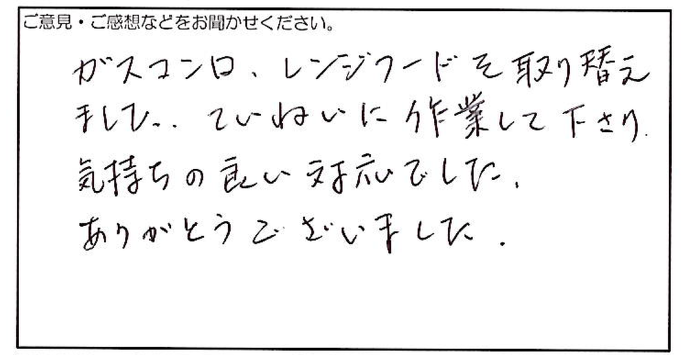 ご意見・ご感想などをお聞かせください。
ガスコンロ、レンジフードを取り替え
ました。ていねいに作業して下さり、
気持ちの良い対応でした。
ありがとうございました。